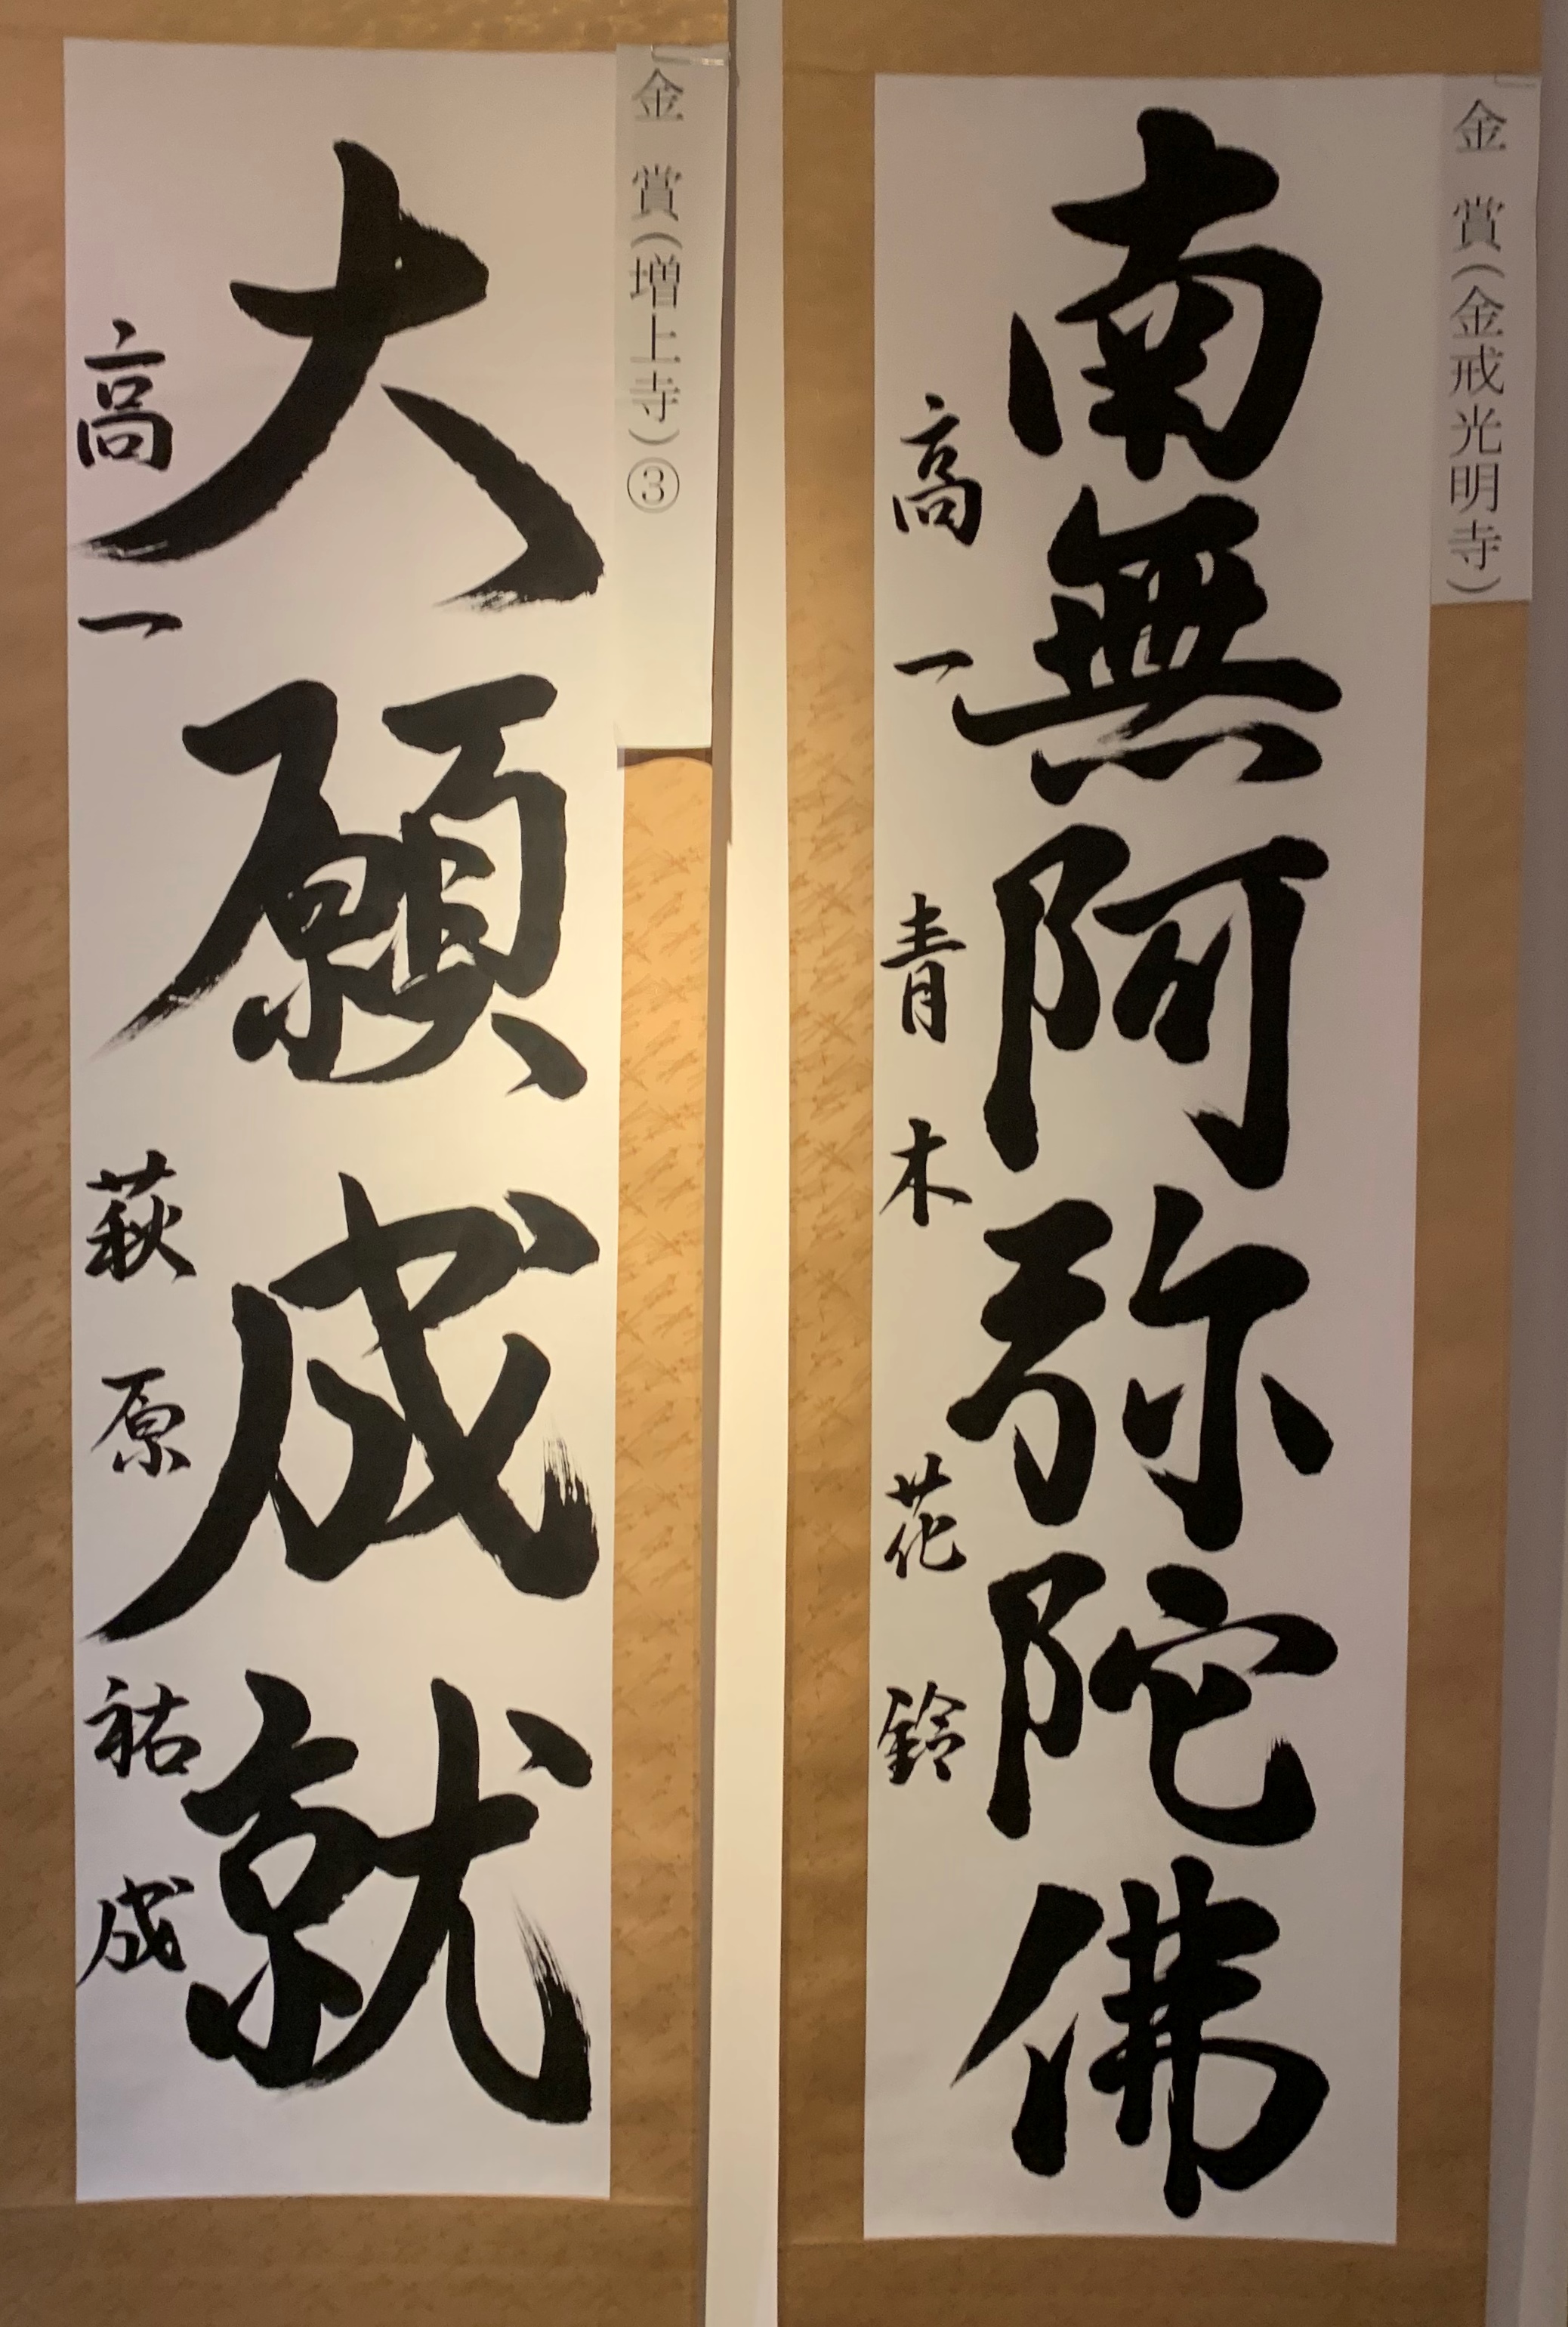 金賞(金戒光明寺)
南無阿弥陀佛
高一 青木花鈴
金賞(増上寺)③
大願成就
高一 萩原祐成